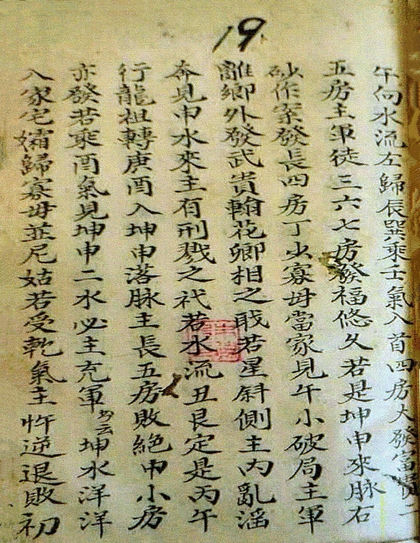 19
午向水流左歸辰巽乘士氣入首四房大發富貴二
五房主軍徒三六七房發福悠久若是坤申來脉石
砂作案發長四房丁火寡母當家見午小破局主軍
離鄉外發武貴翰花卿相之戢若星斜側主內亂滛
奔見申水來主有刑戮之若水流丑艮定是丙午
行龍祖轉庚酉入坤申落脉主長五房敗絶中小房
亦發若乘酉氣見坤申二水必主充軍云坤水洋洋
入家宅孀歸寡母並尼姑若受乾氣主忤逆退敗初